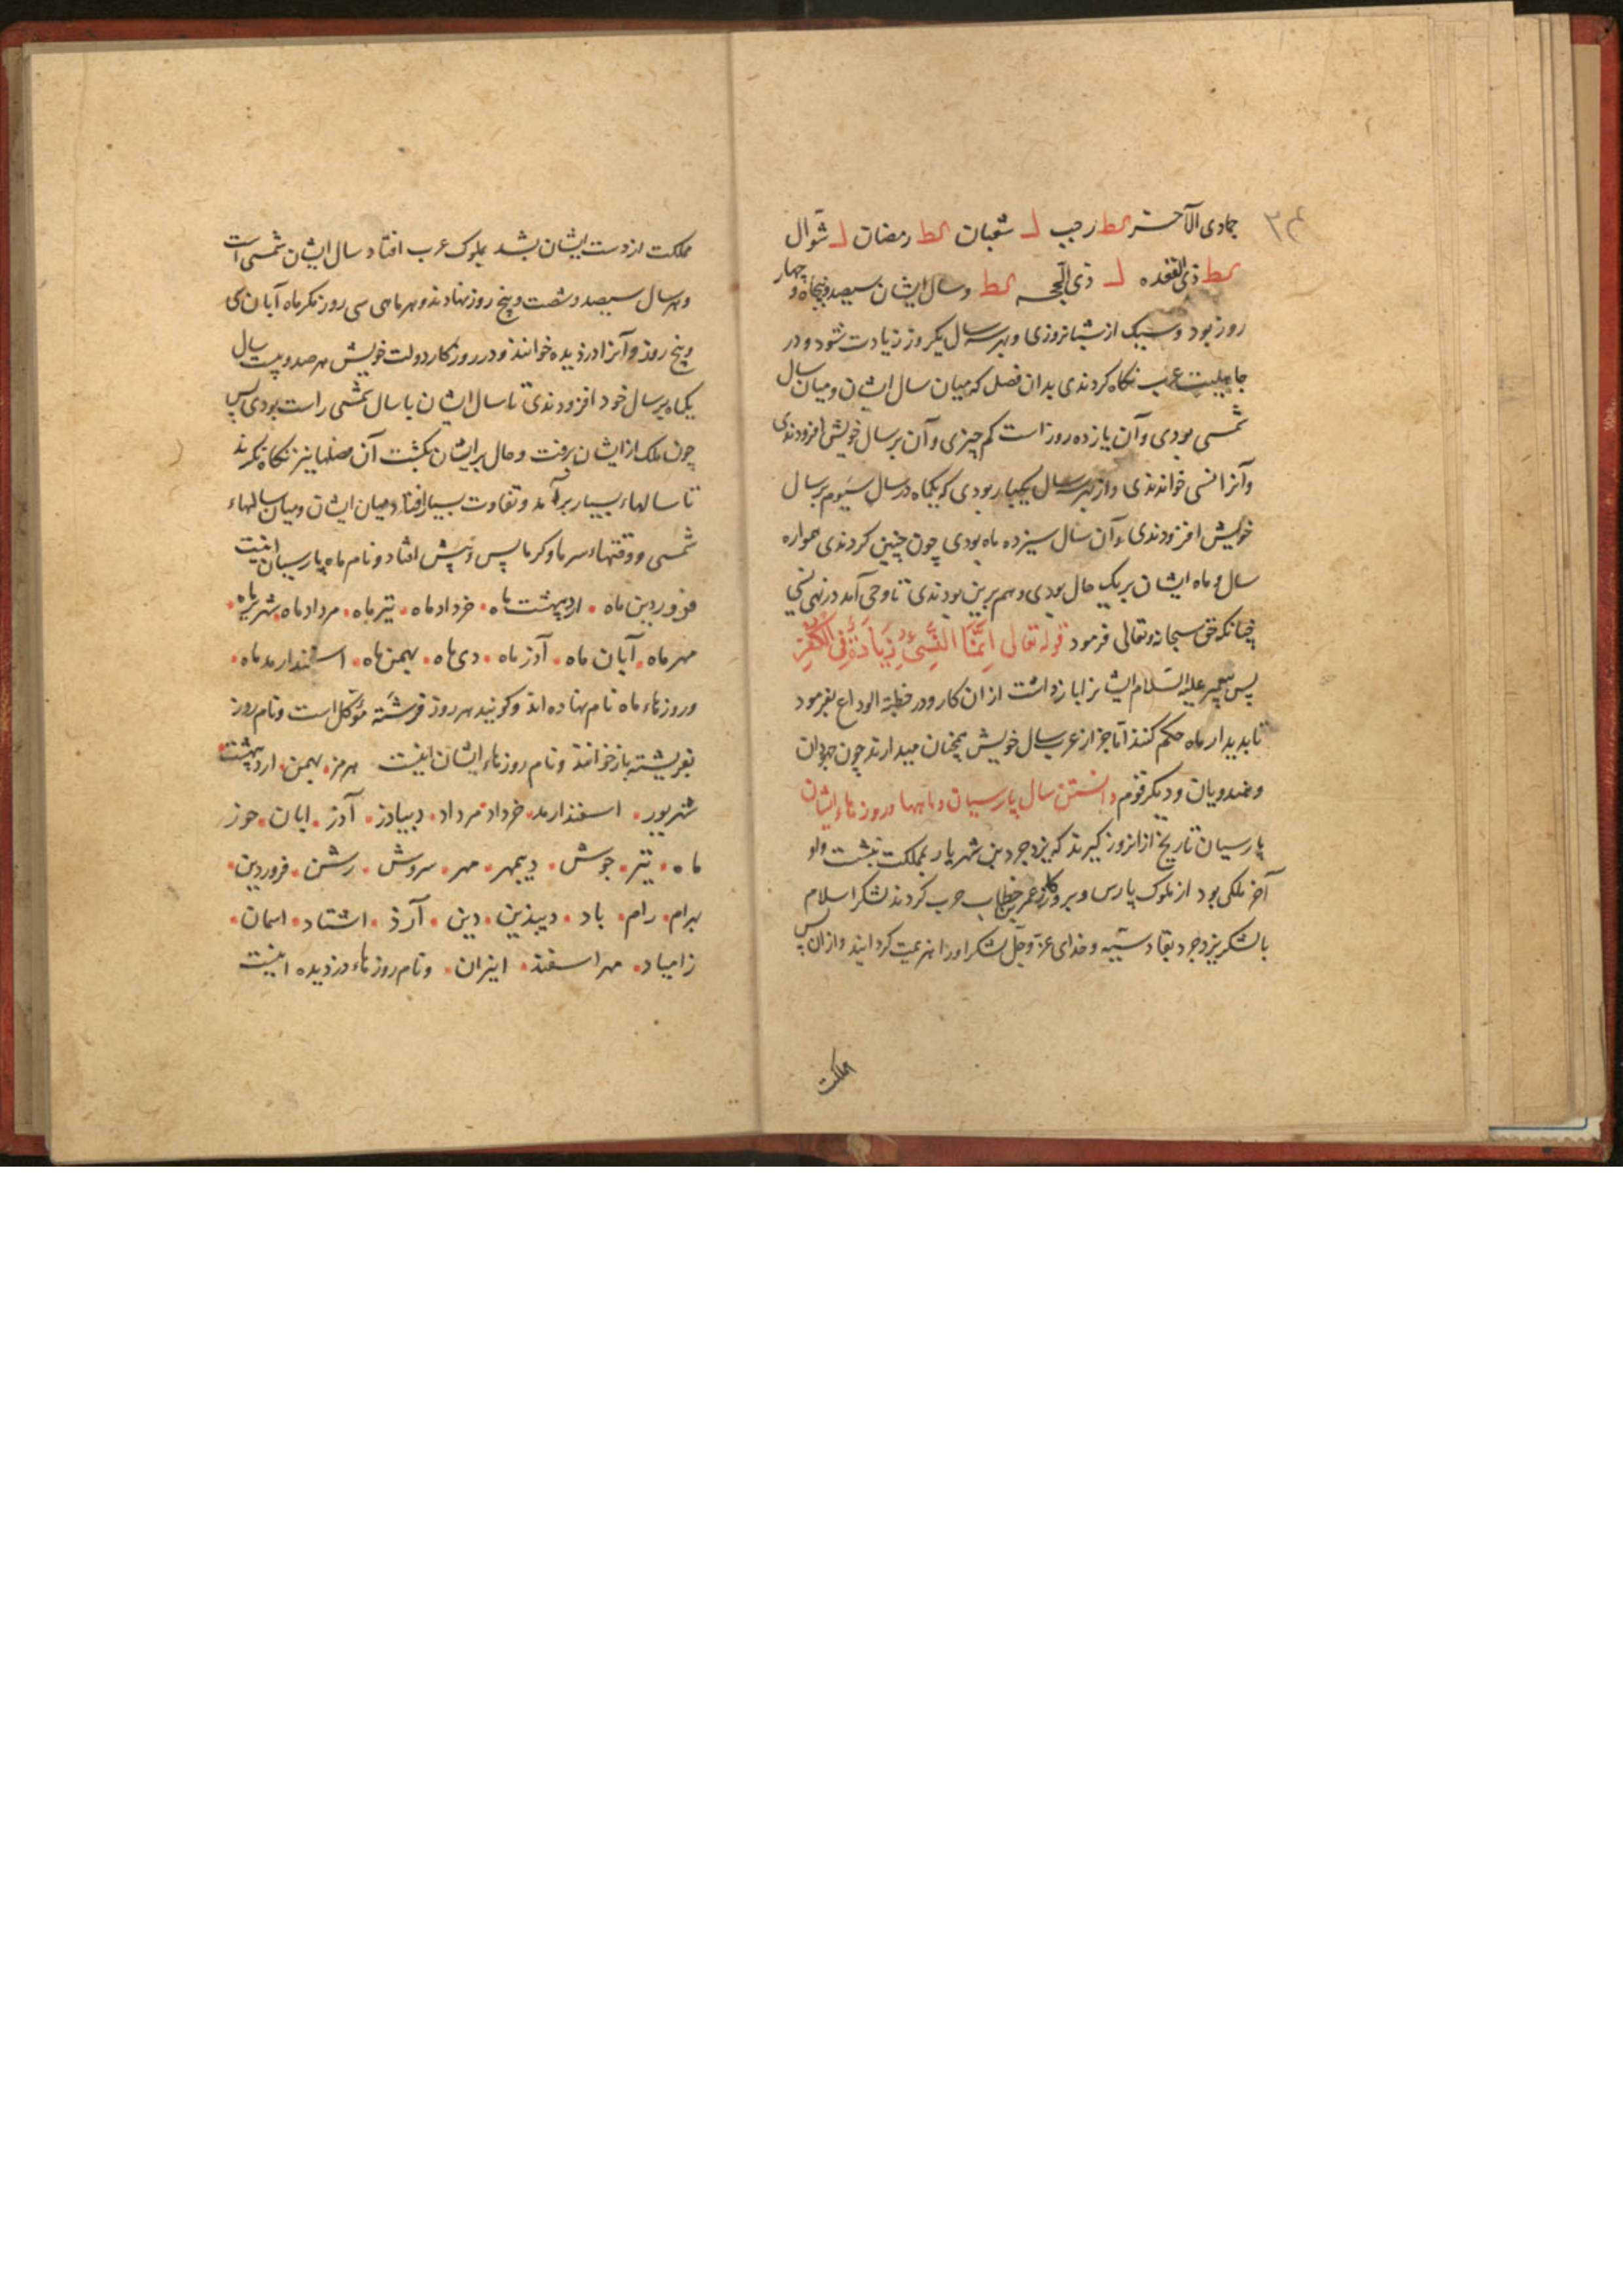 جمادی الآخر کط رجب ل شعبان کط رمضان ل شوّال
کط ذی القعده ل ذی الحجه کط و سال ایشان سیصد و پنجاه و چهار
روز بود و سیک از شبانروزی و بهر سه سال یکروز زیادت شود و در
جاهلیت عرب نگاه کردندی بدان فصل که میان سال ایشان و میان سال
شمسی بودی و آن یازده روز است کم چیزی و آن بر سال خویش افزودندی
و آنرا نسی خواندندی و از بهر سه سال یکبار بودی که یکماه در سال سیوم بر سال
خویش افزودندی و آن سال سیزده ماه بودی چون چنین کردندی همواره
سال و ماه ایشان بر یک حال بودی و هم برین بودندی تا وحی آمد در نهی نسی
چنانکه حق سبحانه و تعالی فرمود قوله تعالی اِنَّمَا النَّسِیُٔ زِیَادَةٌ فِی الکُفرِ
پس پیغمبر علیه السّلام ایشانرا بازداشت از ان کار و در خطبة الوداع بفرمود
تا بدیدار ماه حکم کنند امّا جز از عرب سال خویش همچنان میدارند چون جهودان
و هندویان و دیگر قوم دانستن سال پارسیان و ماهها و روزهاء ایشان
پارسیان تاریخ از انروز گیرند که یزدجرد بن شهریار بمملکت نشست و او
آخر ملکی بود از ملوک پارس و بروزگار عمر بن خطاب حرب کردند لشکر اسلام
با لشکر یزدجرد بقادسیّه و خدای عزّ و جلّ لشکر او را هزیمت گردانید و از ان پس
مملکت
مملکت از دست ایشان بشد بملوک عرب افتاد سال ایشان شمسی است
و بهر سال سیصد و شصت و پنج روز نهادند و هر ماهی سی روز مگر ماه آبان کی
و پنج روز و آنرا دزدیده خوانند و در روزگار دولت خویش بهر صد و بیست سال
یکماه بر سال خود افزودندی تا سال ایشان با سال شمسی راست بودی پس
چون ملک از ایشان برفت و حال بر ایشان بگشت آن فصلها نیز نگاه نکردند
تا سالهاء بسیار برآمد و تفاوت بسیار افتاد میان ایشان و میان سالهاء
شمسی و وقتهاء سرما و گرما پس و پیش افتاد و نام ماه پارسیان اینست
فروردین ماه • اردیبهشت ماه • خرداد ماه • تیر ماه • مرداد ماه • شهریر ماه •
مهر ماه • آبان ماه • آذر ماه • دی ماه • بهمن ماه • اسفندارمد ماه •
و روزهاء ماه نام نهاده اند و گویند هر روز فرشته مؤکل است و نام روز
بفریشته باز خوانند و نام روزهاء ایشان اینست هرمز • بهمن • اردیبهشت •
شهریور • اسفندارمد • خرداد • مرداد • دیباذر • آذر • ابان • خور
ماه • تیر • جوش • دیبمهر • مهر • سروش • رشن • فروردین •
بهرام • رام • باد • دیبدین • دین • آرذ • اشتاد • اسمان •
زامیاد • مهراسفند • انیران • و نام روزهاء دزدیده اینست